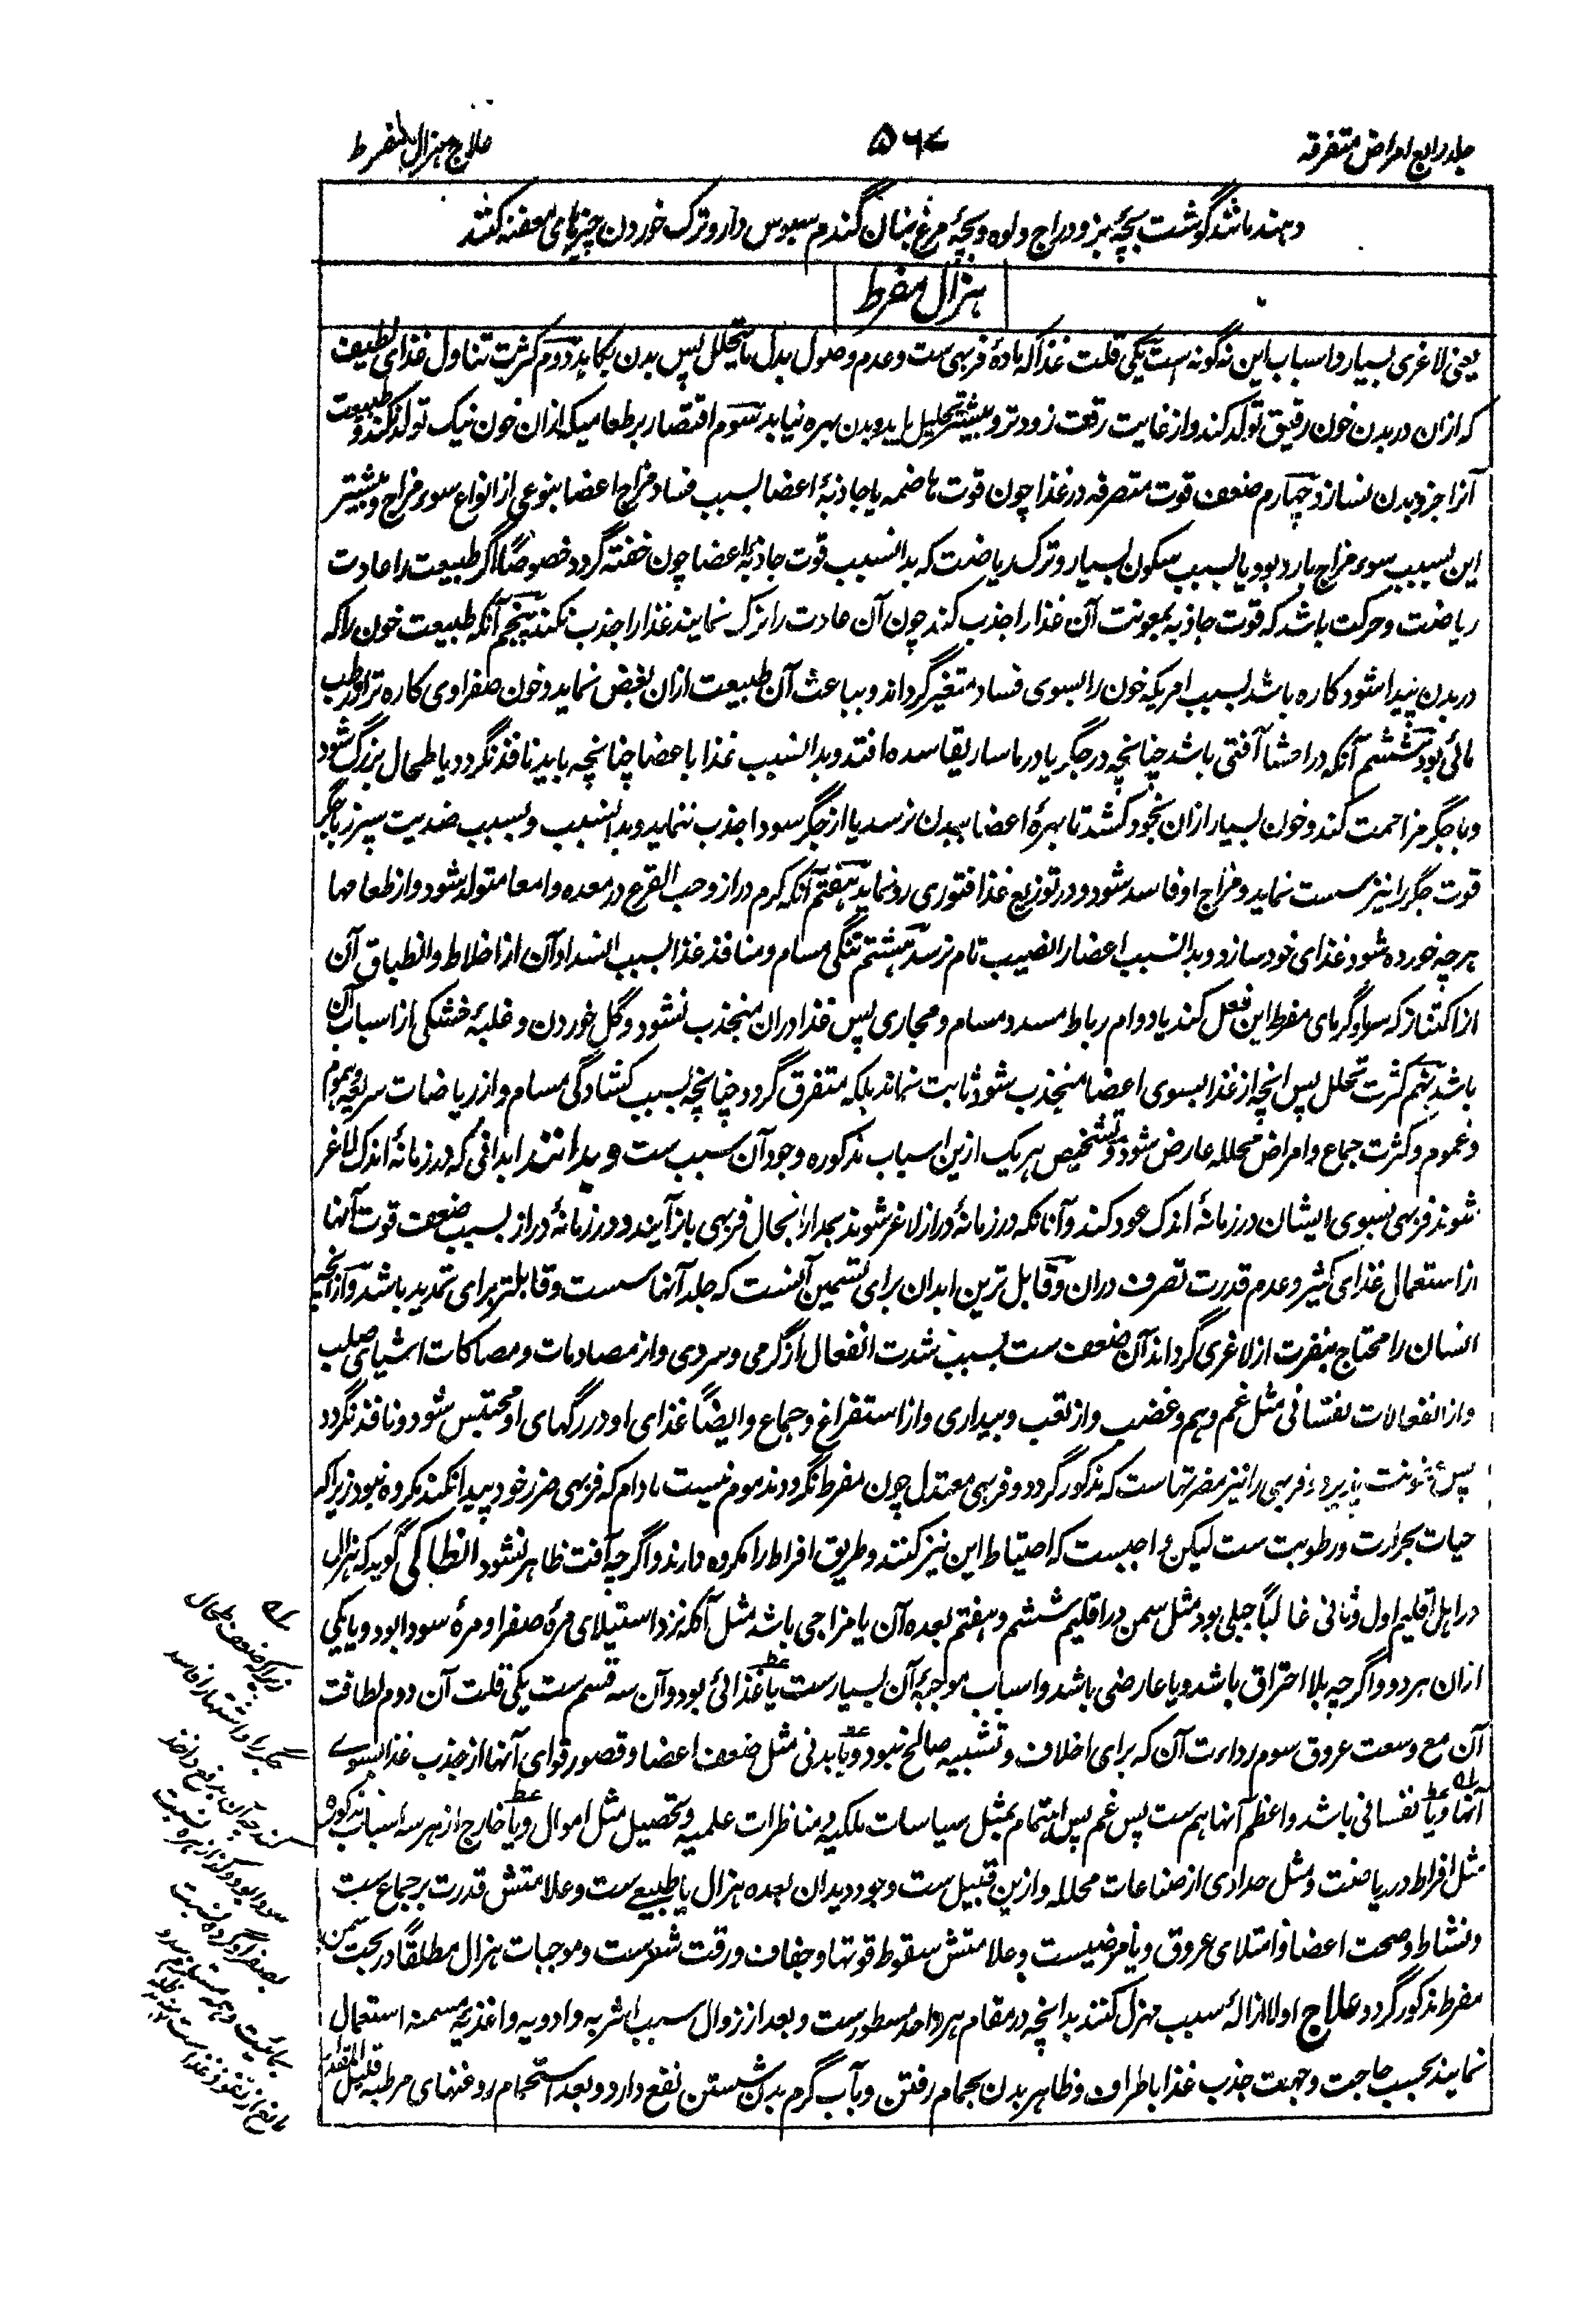 جلد رابع امراض متفرقه
۵۶۷
علاج هزال مفرط
دهند مانند گوشت بچهٔ بز و دراج و لوه و بچهٔ مرغ بنان گندم سبوس دار و ترک خوردن چیزهای معفنه کنند
هزال مفرط
یعنی لاغری بسیار و اسباب این نه گونه است یکی قلت غذا که مادهٔ فربهی ست و عدم وصول بدل ما یتحلل پس بدن بکاهد دوم کثرت تناول غذای لطیف
که ازان در بدن خون رقیق تولد کند و از غایت رقت زودتر و بیشتر تحلیل یابد و بدن بهره نیابد سوم اقتصار بر طعامیکه ازان خون نیک تولد نکند و طبیعت
آنرا جزو بدن نسازد چهارم ضعف قوت متصرفه در غذا چون قوت هاضمه یا جاذبهٔ اعضا بسبب فساد مزاج اعضا بنوعی از انواع سوء مزاج و بیشتر
این بسبب سوء مزاج بارد بود یا بسبب سکون بسیار و ترک ریاضت که بدانسبب قوت جاذبهٔ اعضا چون خفته گردد خصوصًا اگر طبیعت را عادت
ریاضت و حرکت باشد که قوت جاذبه بمعونت آن غذا را جذب کند چون آن عادت را ترک نمایند غذا را جذب نکند پنجم آنکه طبیعت خون را که
در بدن پیدا شود کاره باشد بسبب امریکه خون را بسوی فساد متغیر گرداند و بباعث آن طبیعت ازان بغض نماید و خون صفراوی کاره تر از رطب
مائی بود ششم آنکه در احشا آفتی باشد چنانچه در جگر یا در ماساریقا سده افتد و بدانسبب غذا با عضا چنانچه باید نافذ نگردد یا طحال بزرگ شود
و با جگر مزاحمت کند و خون بسیار ازان بخود کشد تا بهرهٔ اعضا ببدن نرسد یا از جگر سودا جذب ننماید و بدانسبب و بسبب ضدیت سپرز با جگر
قوت جگر را نیز سست نماید و مزاج او فاسد شود و در توزیع غذا فتوری رو نماید هفتم آنکه کرم دراز و حب القرع در معده و امعا متولد شود و از طعامها
هرچه خورده شود غذای خود سازد و بدانسبب اعضا را نصیب تام نرسد هشتم تنگی مسام و منافذ غذا بسبب انسداد آن از اخلاط و انطباق آن
از اکتناز که سرما و گرمای مفرط این فعل کند یا دوام رباط مسدد مسام و مجاری پس غذا دران منجذب نشود و گل خوردن و غلبهٔ خشکی از اسباب آن
باشد نهم کثرت تحلل پس انچه از غذا بسوی اعضا منجذب شود ثابت نماند بلکه متفرق گردد چنانچه بسبب کشادگی مسام و از ریاضات سریعه و هموم
و غموم و کثرت جماع و امراض محلله عارض شود و تشخیص هر یک ازین اسباب مذکوره وجود آن سبب ست و بدانند ابدانی که در زمانهٔ اندک لاغر
شوند فربهی بسوی ایشان در زمانهٔ اندک عود کند و آنانکه در زمانهٔ دراز لاغر شوند بمدارا بحال فربهی باز آیند و در زمانهٔ دراز بسبب ضعف قوت آنها
از استعمال غذای کثیر و عدم قدرت تصرف دران و قابل ترین ابدان برای تسمین آنست که جلد آنها سست و قابلتر برای تمدید باشد و از انچه
انسان را محتاج بنفرت از لاغری گرداند آن ضعف ست بسبب شدت انفعال از گرمی و سردی و از مصادمات و مصاکات اشیای صلب
و از انفعالات نفسانی مثل غم و هم و غضب و از تعب و بیداری و از استفراغ و جماع و ایضًا غذای او در رگهای او محتبس شود و نافذ نگردد
پس عفونت پذیرد و فربهی را نیز مضرتهاست که مذکور گردد و فربهی معتدل چون مفرط نگردد مذموم نیست مادام که فربهی ضرر خود پیدا نکند مکروه نبود زیرا که
حیات بحرارت و رطوبت ست لیکن واجبست که احتیاط این نیز کنند و طریق افراط را مکروه دارند و اگرچه آفت ظاهر نشود انطاکی گوید که هزال
در اهل اقلیم اول و ثانی غالبًا جبلی بود مثل سمن در اقلیم ششم و هفتم بعده آن یا مزاجی باشد مثل آکله نزد استیلای مرهٔ صفرا و مرهٔ سودا بود و یا یکی
ازان هر دو و اگرچه بلا احتراق باشد و یا عارضی باشد و اسباب موجبهٔ آن بسیارست یا غذائی بود و آن سه قسم ست یکی قلت آن دوم لطافت
آن مع وسعت عروق سوم رداءت آن که برای اخلاف و تشبیه صالح نبود و یا بدنی مثل ضعف اعضا و قصور قوای آنها از جذب غذا بسوی
آنها و یا نفسانی باشد و اعظم آنها هم ست پس غم پس اهتمام بمثل سیاسات ملکیه و مناظرات علمیه و تحصیل مثل اموال و یا خارج از هر سه اسباب مذکوره
مثل افراط در ریاضت و مثل حدادی از صناعات محلله و ازین قبیل ست وجود دیدان بعده هزال یا طبیعی ست و علامتش قدرت بر جماع ست
و نشاط و صحت اعضا و امتلای عروق و یا مرضیست و علامتش سقوط قوتها و جفاف و رقت شعرست و موجبات هزال مطلقًا در بحث سمن
مفرط مذکور گردد علاج اولا ازالهٔ سبب مهزل کنند بدانچه در مقام هر واحد مسطورست و بعد از زوال سبب اشربه و ادویه و اغذیهٔ مسمنه استعمال
نمایند بحسب حاجت و جهت جذب غذا باطراف و ظاهر بدن بحمام رفتن و بآب گرم بدن شستن نفع دارد و بعد استحمام روغنهای مرطبه قلیل
زیرا که ضعف طحال
جگر را و اشتها را فاسد